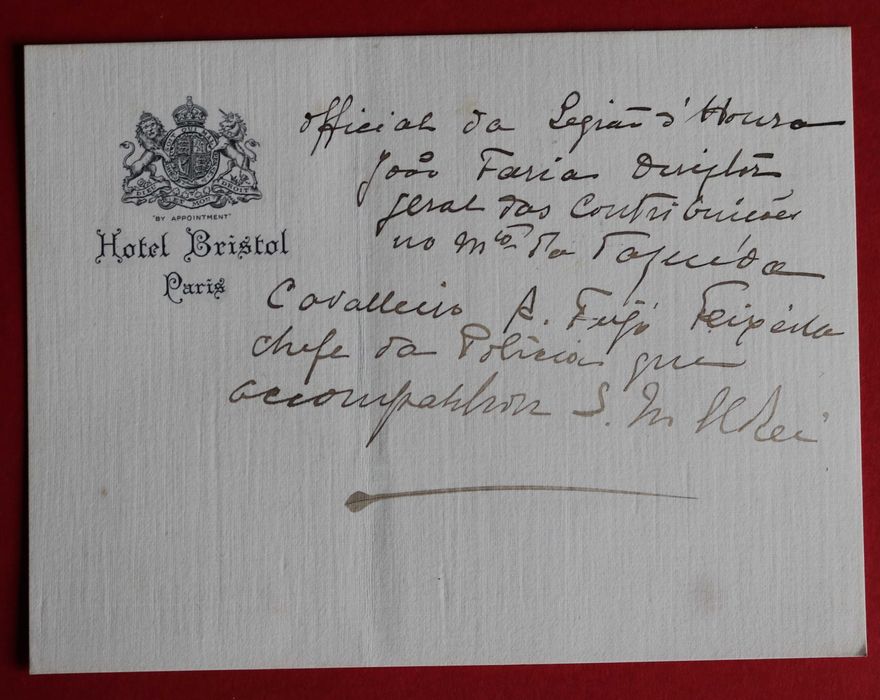 "BY APPOINTMENT"
Hotel Bristol
Paris
Official da Legião d'Honra
João Faria Director
geral das Contribuições
no Mto da Fazenda
Cavalleiro A. Feijó Teixeira
chefe da Policia que
accompanhou S. M. El Rei
DIEU ET MON DROIT